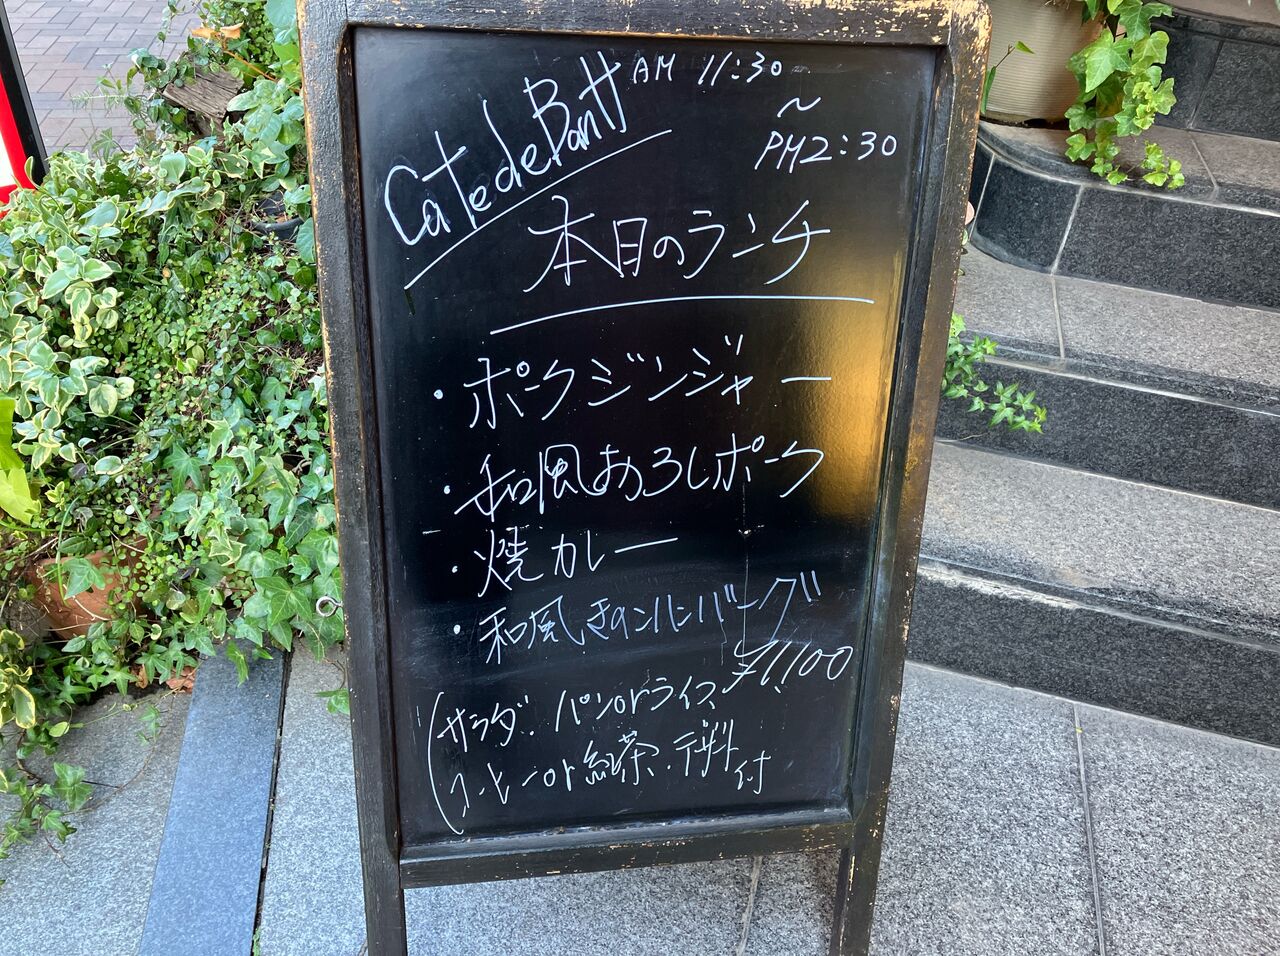 Cafe de Banff AM 11:30
～
PM2:30
本日のランチ
・ポークジンジャー
・和風おろしポーク
・焼カレー
・和風きのこハンバーグ
¥1,100
(サラダ、パンorライス
コーヒーor紅茶、デザート付